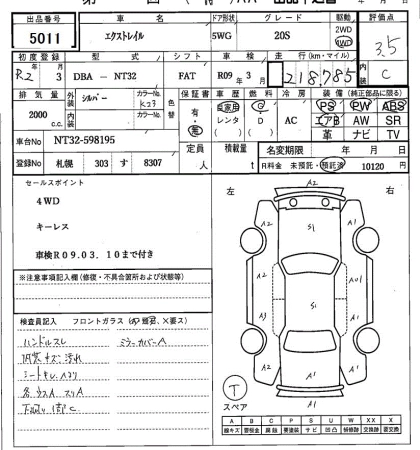 出品番号 車名 ドア形状 グレード 駆動 評価点
5011 エクストレイル 5WG 20S 2WD 4WD 3.5
初度登録 型式 シフト 車検 走行(km・マイル) 内装
R2年 3月 DBA - NT32 FAT R09年 3月 218,785 C
排気量 外装 シルバー カラーNo. K23 色替 内装 カラーNo. 保証書 車歴 燃料 冷房 装備(純正部品に限る)
2000 c.c. 有・無 自家用 レンタ G D AC PS PW ABS
エアB AW SR
革 ナビ TV
車台No NT32-598195 定員 人 積載量 t 名変期限 年 月 日
登録No 札幌 303 す 8307 R料金 未預託・預託済 10120 円
セールスポイント
4WD
キーレス
車検R09.03.10まで付き
左 右
※注意事項記入欄(修復・不具合箇所および状態等)
検査員記入 フロントガラス
ハンドルスレ ミラーカバーA
内装キズ 汚れ
シートキレ
下廻り
A2
A2 S1 A1
A2 S1 A01
A3 A1
A1 A1
A1
T
スペア
A B C P S U W X XX
線キズ 要板金 腐蝕 要塗装 サビ 凹凸 補修跡 交換跡 要交換